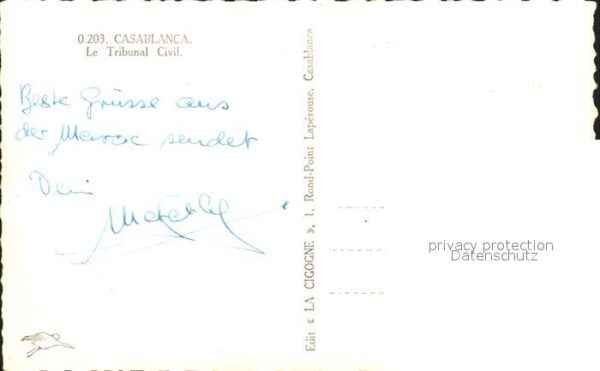 0.203. CASABLANCA.
Le Tribunal Civil.
Beste Grüsse aus
der Maroc sendet
Dein
Edit « LA CIGOGNE », 1, Rond-Point Lapérouse, Casablanca
privacy protection
Datenschutz